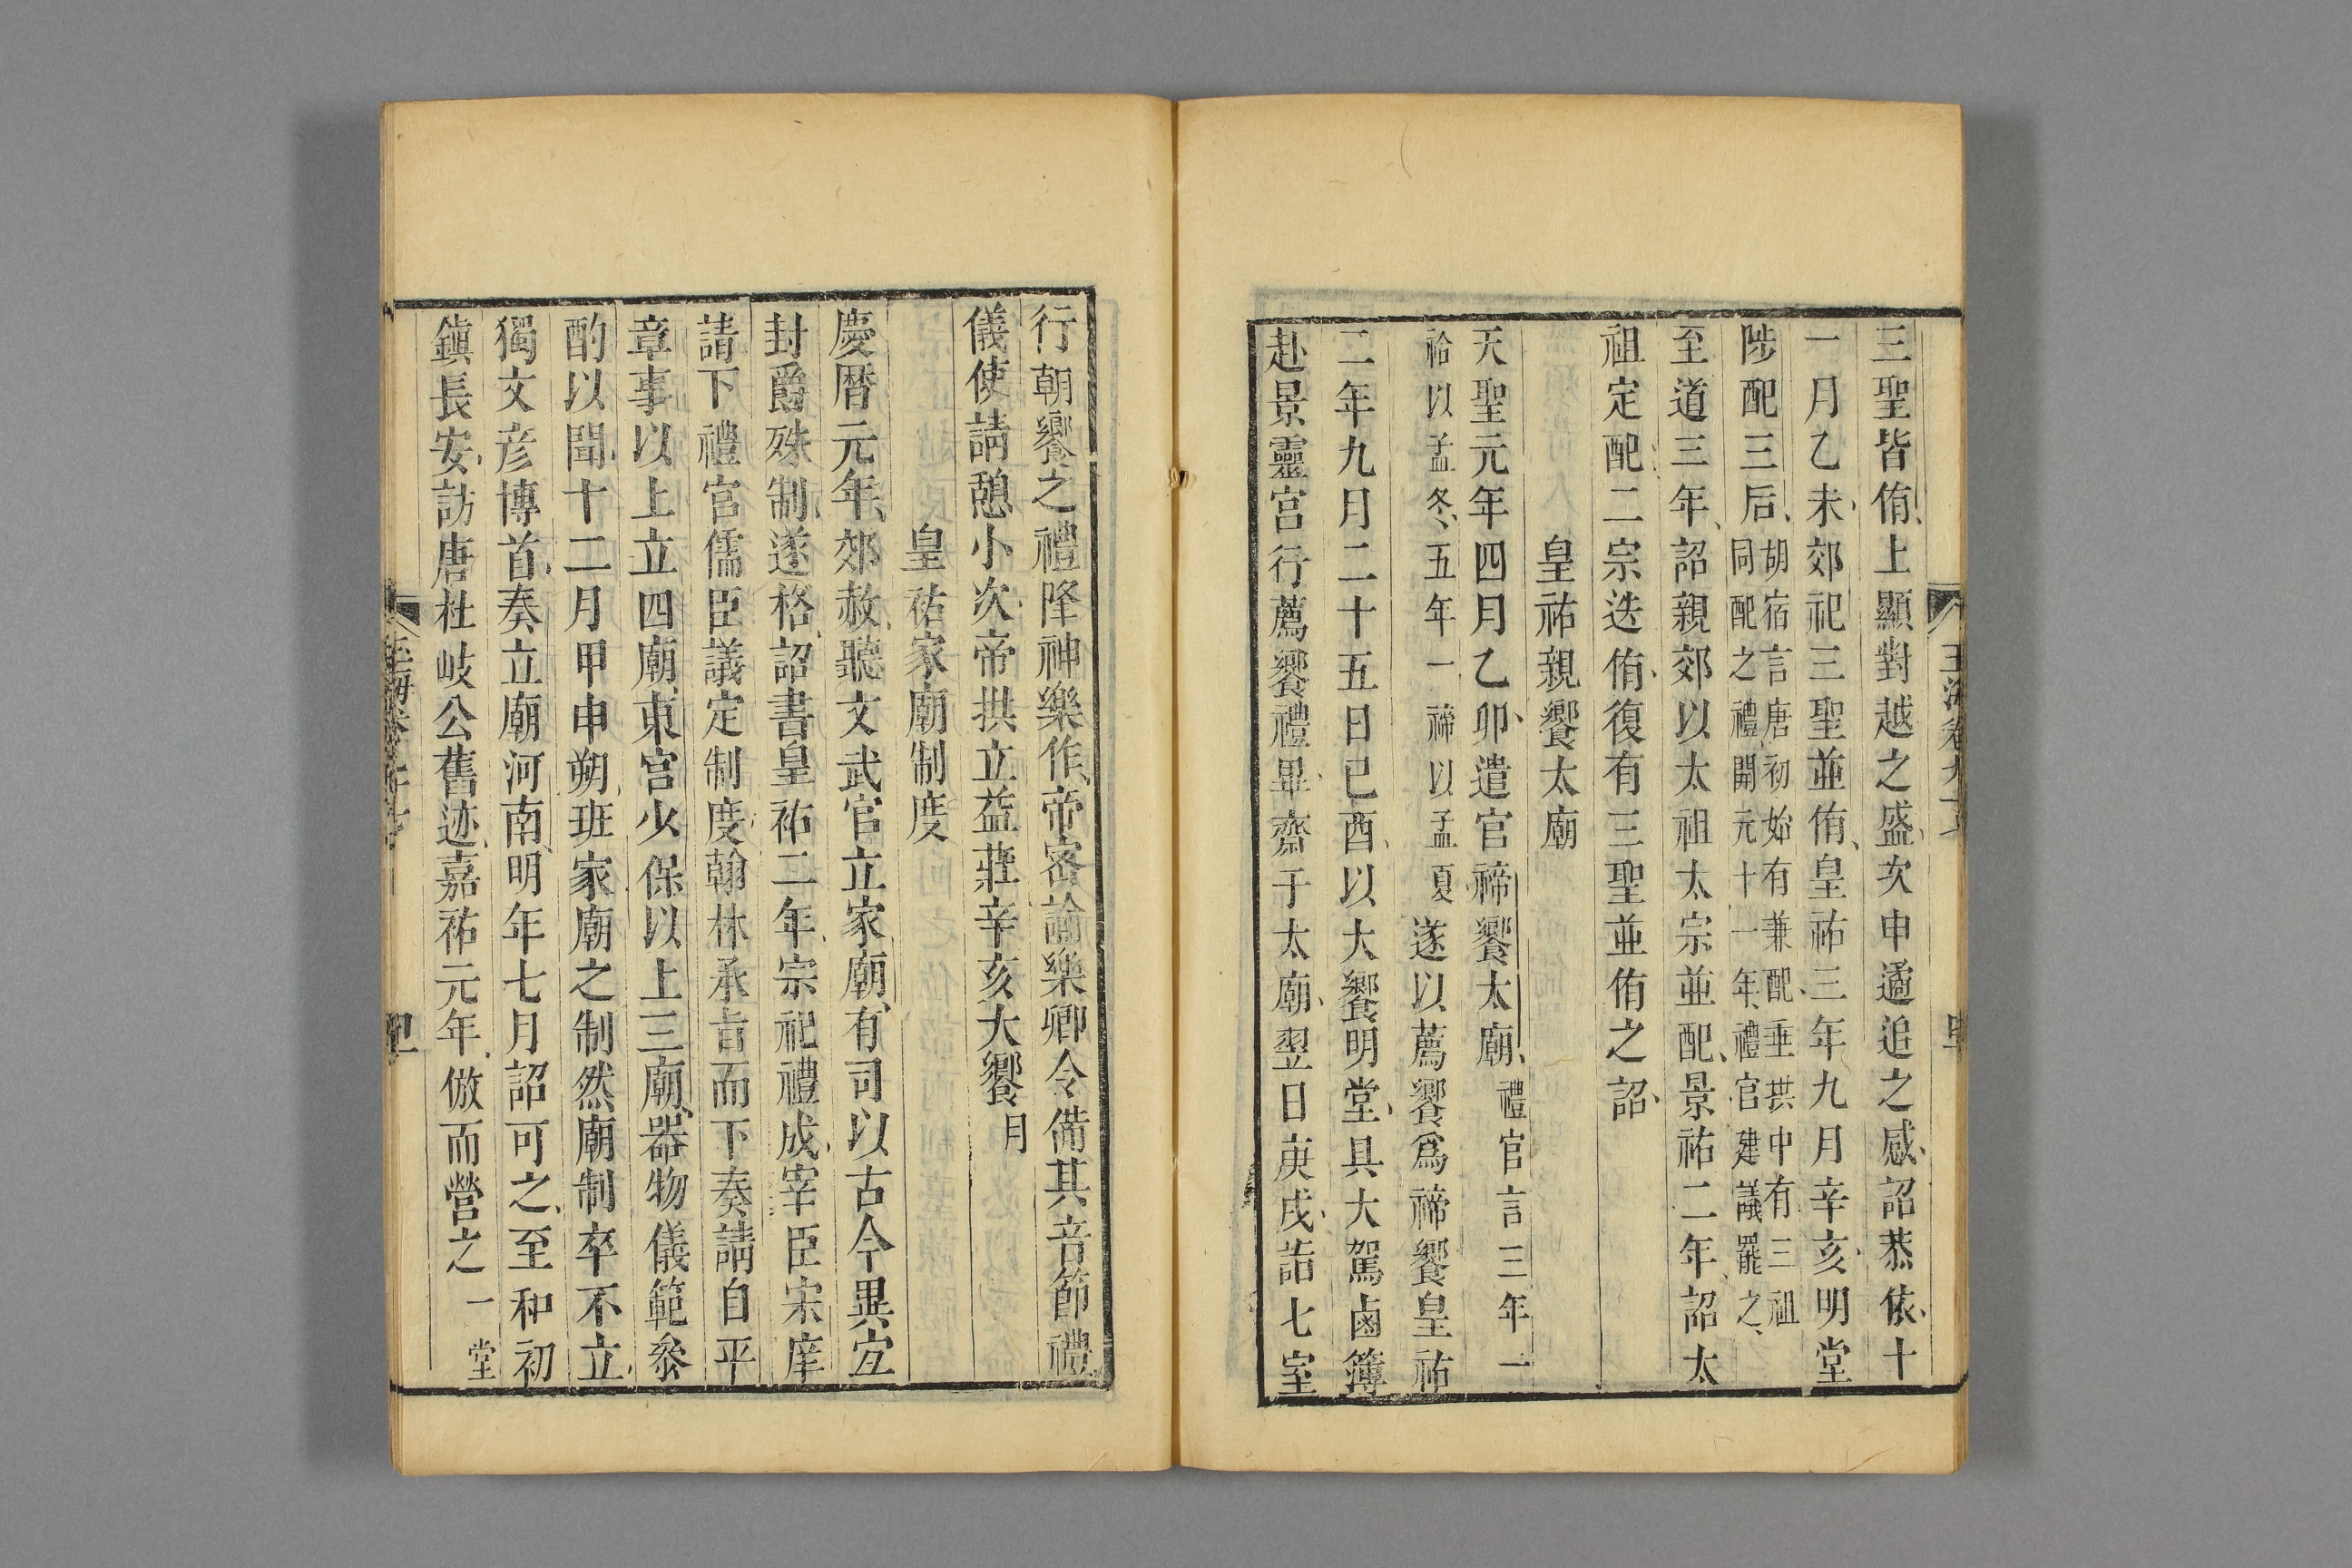 三聖皆侑上顯對越之盛次申遹追之感詔恭依十
一月乙未郊祀三聖並侑皇祐三年九月辛亥明堂
陟配三后胡宿言唐初始有兼配垂拱中有三祖
同配之禮開元十一年禮官建議罷之
至道三年詔親郊以太祖太宗並配景祐二年詔太
祖定配二宗迭侑復有三聖並侑之詔
皇祐親饗太廟
天聖元年四月乙卯遣官禘饗太廟禮官言三年一
祫以孟冬五年一禘以孟夏遂以薦饗爲禘饗皇祐
二年九月二十五日己酉以大饗明堂具大駕鹵簿
赴景靈宫行薦饗禮畢齋于太廟翌日庚戌詣七室
行朝饗之禮降神樂作帝密諭樂卿令備其音節禮
儀使請憩小次帝拱立益莊辛亥大饗月
皇祐家廟制度
慶曆元年郊赦聽文武官立家廟有司以古今異宜
封爵殊制遂格詔書皇祐二年宗祀禮成宰臣宋庠
請下禮官儒臣議定制度翰林承旨而下奏請自平
章事以上立四廟東宫少保以上三廟器物儀範參
酌以聞十二月甲申朔班家廟之制然廟制卒不立
獨文彦博首奏立廟河南明年七月詔可之至和初
鎮長安訪唐杜岐公舊迹嘉祐元年倣而營之一堂